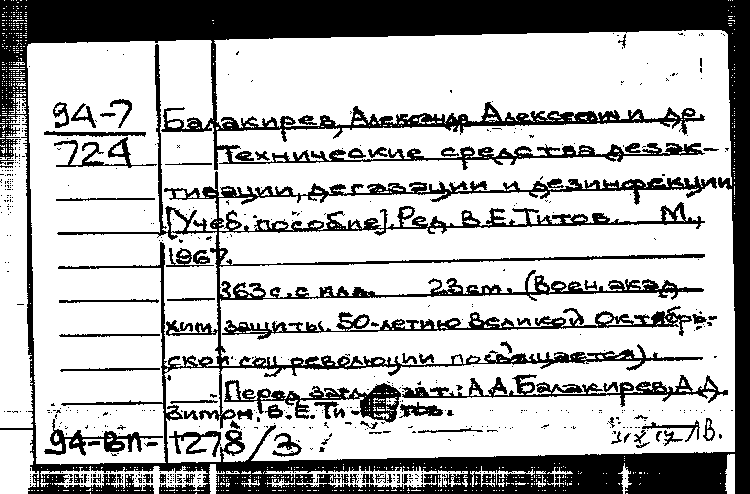 94-7
724
Балакирев, Александр Алексеевич и др.
Технические средства дезак-
тивации, дегазации и дезинфекции
[Учеб. пособие]. Ред. В.Е.Титов. М.,
1967.
363с. с илл. 23см. (Воен. акад.
хим. защиты. 50-летию Великой Октябрь-
ской соц. революции посвящается).
Перед загл. авт.: А.А.Балакирев, А.Д.
Зимон, В.Е.Титов.
94-ВП-1278/3